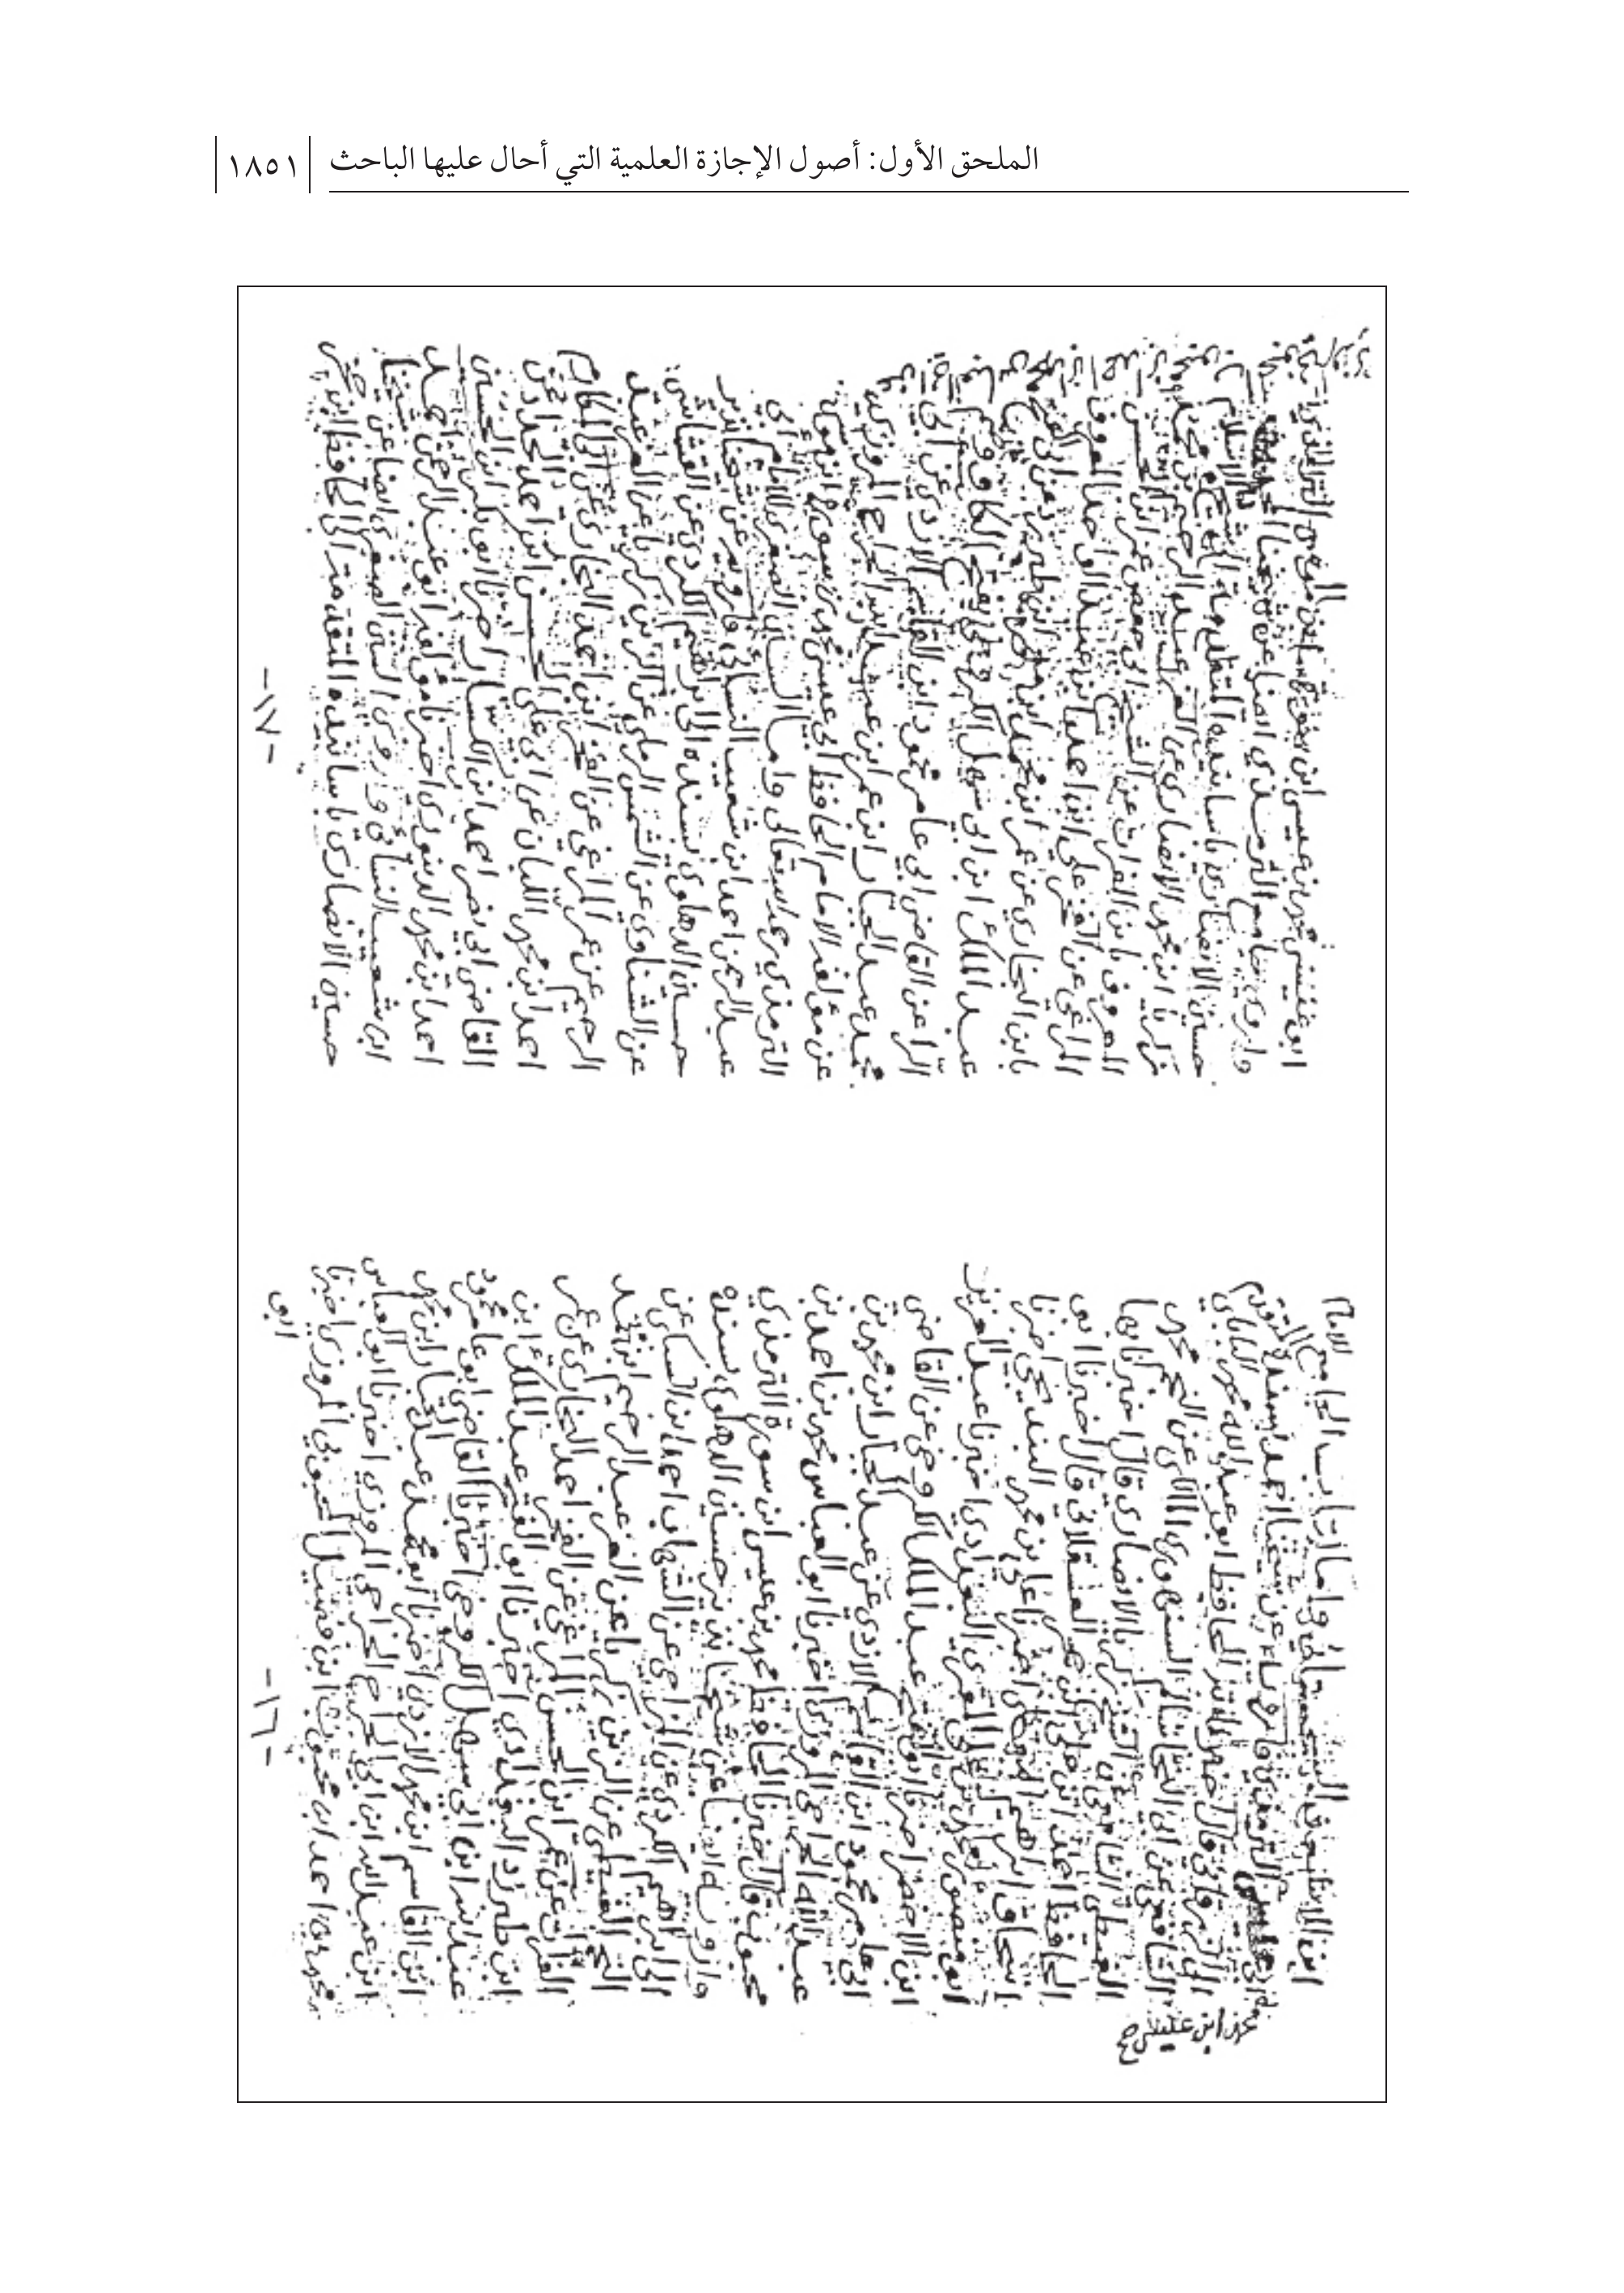 الملحق الأول: أصول الإجازة العلمية التي أحال عليها الباحث
١٨٥١
ابن الاشعث السجستاني واما كتاب الجامع للامام
ابي عيسى الترمذي فارويه عن شيخنا احمد بسنده المتقدم
الى الزرقاني قال اخبرنا به الحافظ ابو عبد الله محمد البابلي
الشافعي عن ابي النجا سالم السنهوري المالكي عن النجم محمد
الغيطي الشافعي عن الشيخ زكريا الانصاري قال اخبرنا بها
الحافظ احمد ابن علي ابن حجر العسقلاني قال اخبرنا ابو
اسحاق ابراهيم التنوخي اخبرنا علي ابن محمد البندنيجي اخبرنا
ابو منصور محمد بن علي المقري البغدادي اخبرنا عبد العزيز
ابن الاخضر اخبرنا ابو الفتح عبد الملك الكروخي عن القاضي
ابي عامر محمود ابن القاسم الازدي عن عبد الجبار ابن محمد بن
عبد الله الجراحي المروزي اخبرنا ابو العباس محمد بن احمد بن
محبوب قال اخبرنا الحافظ محمد بن عيسى ابن سورة الترمذي
وارويه ايضا عن شيخنا بدر حسين الدهلوي بسنده
الى ابراهيم الكردي عن المزاحي عن الشهاب احمد ابن السبكي عن
النجم الغيطي عن الزين زكريا عن العز عبد الرحيم ابن محمد
الفرات عن عمر ابن الحسن المراغي عن الفخر احمد البخاري عن عمر
ابن طبرزد البغدادي اخبرنا ابو الفتح عبد الملك ابن
عبد الله ابن ابي سهل الكروخي اخبرنا القاضي ابو عامر محمود
ابن القاسم ابن محمد الازدي اخبرنا ابو محمد عبد الجبار ابن محمد
ابن عبد الله ابن ابي الجراح الجراحي المروزي اخبرنا ابو العباس
محمد بن احمد ابن محبوب ابن فضيل المحبوبي المروزي اخبرنا
ابو
محمد ابن عيسى صح
-١٦-
ابو عيسى محمد بن عيسى ابن سورة ابن موسى الترمذي
واروي جامع الترمذي ايضا عن شيخنا
حسين الانصاري باسانيده المتقدمة الى شيخ الاسلام
زكريا ابن محمد الانصاري عن العز عبد الرحيم بن محمد
المعروف بابن الفرات عن الشيخ ابي حفص عمر ابن الحسن
المراغي عن الفخر علي ابن احمد ابن عبد الواحد المعروف
بابن البخاري عن عمر ابن محمد ابن طبرزد عن ابي الفتح
عبد الملك ابن ابي سهل الكروخي بفتح الكاف وضم
الراء عن القاضي ابي عامر محمود ابن القاسم الازدي عن ابي
محمد عبد الجبار ابن محمد ابن عبد الله ابن الجراح المروزي
عن مؤلفه الامام الحافظ ابي عيسى محمد بن سورة ابن موسى
الترمذي رحمه الله تعالى واما السنن الصغرى للامام ابي
عبد الرحمن احمد ابن شعيب النسائي فارويه عن شيخنا بدر
حسين الدهلوي بسنده الى ابراهيم الكردي عن القشاشي
عن الشناوي عن الشمس الرملي عن الزين زكريا عن العز عبد
الرحيم عن عمر المراغي عن الفخر ابن احمد البخاري عن ابي المكارم
احمد ابن محمد اللبان عن ابي علي الحسن ابن احمد الحداد عن
القاضي ابي نصر احمد ابن الكسار اخبرنا ابو بكر ابن السني
احمد ابن محمد الدينوري اخبرنا مؤلفه ابو عبد الرحمن احمد
ابن شعيب النسائي واروي السنن الصغرى ايضا عن شيخنا
حسين الانصاري باسانيده المتقدمة الى الحافظ ابن حجر
-١٧-